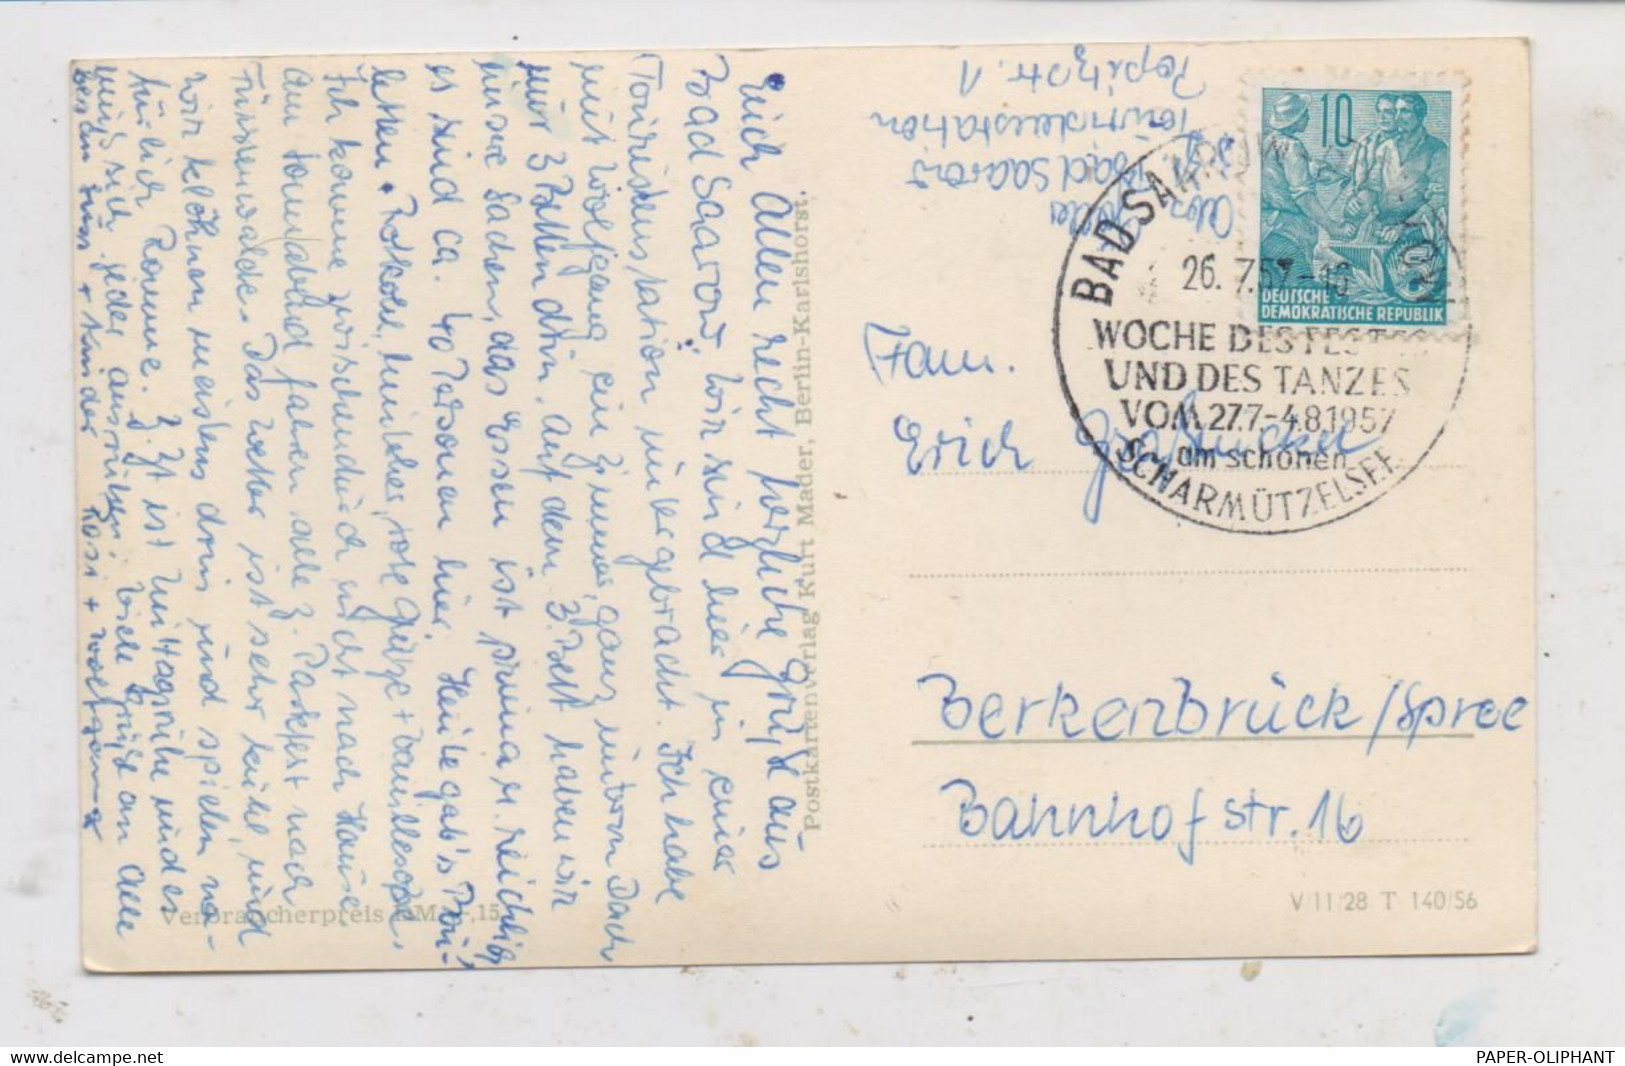 Euch Allen recht herzliche Grüße aus
Bad Saarow. Wir sind hier in einer
Touristenstation untergebracht. Ich habe
mit Wolfgang ein Zimmer, ganz unterm Dach
nur 3 Betten drin. Auf dem 3. Bett haben wir
unsre Sachen, das Essen ist prima u. reichlich
es sind ca. 40 Personen hier. Heute gab's
letten, Rotkohl, hinterher rote Grütze + Vanillesoße.
Ich komme zwischendurch nicht nach Hause
am Sonnabend fahren alle z. Parkfest nach
Fürstenwalde. Das Wetter ist sehr kühl, und
wir klöhnen meistens drin und spielen na-
türlich Romme. Z. Zt ist Mittagsruhe und es
muß sich jeder ausruhen. Viele Grüße an Alle
Rosi + Wolfgang
Verbraucherpreis DM -,15
Postkartenverlag Kurt Mader, Berlin-Karlshorst.
Abs.
Bad Saarow
Touristenstation
Str. 1
10
DEUTSCHE
DEMOKRATISCHE REPUBLIK
BAD SAAROW
26. 7.57.-16
WOCHE DES FESTES
UND DES TANZES
VOM 27.7.-4.8.1957
am schönen
SCHARMÜTZELSEE
Fam.
Erich
Berkenbrück/Spree
Bahnhofstr. 16
V/11/28 T 140/56
PAPER-OLIPHANT
www.delcampe.net